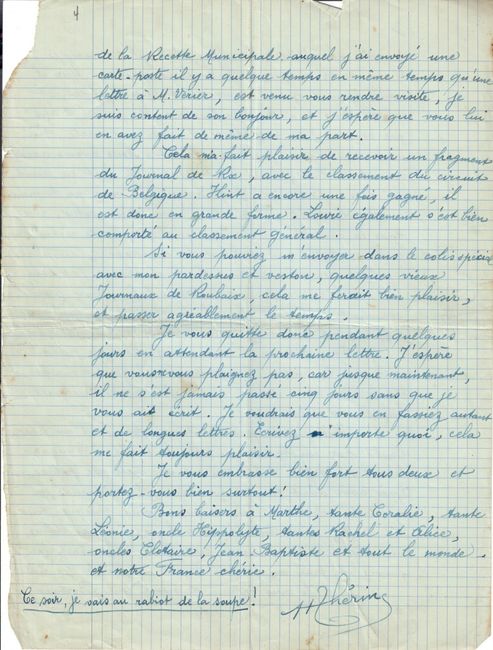 4
de la Recette Municipale auquel j'ai envoyé une
carte-poste il y a quelque temps en même temps qu'une
lettre à M. Verier, est venu vous rendre visite, je
suis content de son bonjour, et j'espère que vous lui
en avez fait de même de ma part.
Cela m'a fait plaisir de recevoir un fragment
du Journal de Rx, avec le classement du circuit
de Belgique. Hint a encore une fois gagné, il
est donc en grande forme. Louvié également s'est bien
comporté au classement général.
Si vous pouviez m'envoyer dans le colis spécial
avec mon pardessus et veston, quelques vieux
Journaux de Roubaix, cela me ferait bien plaisir,
et passer agréablement le temps.
Je vous quitte donc pendant quelques
jours en attendant la prochaine lettre. J'espère
que vous ne vous plaignez pas, car jusque maintenant,
il ne s'est jamais passé cinq jours sans que je
vous ait écrit. Je voudrais que vous en fassiez autant
et de longues lettres. Ecrivez n'importe quoi, cela
me fait toujours plaisir.
Je vous embrasse bien fort tous deux et
portez-vous bien surtout!
Bons baisers à Marthe, tante Coralie, tante
Léonie, oncle Hippolyte, tantes Rachel et Alice,
oncles Clotaire, Jean Baptiste et tout le monde.
et notre France chérie.
Ce soir, je vais au rabiot de la soupe!
Thérin